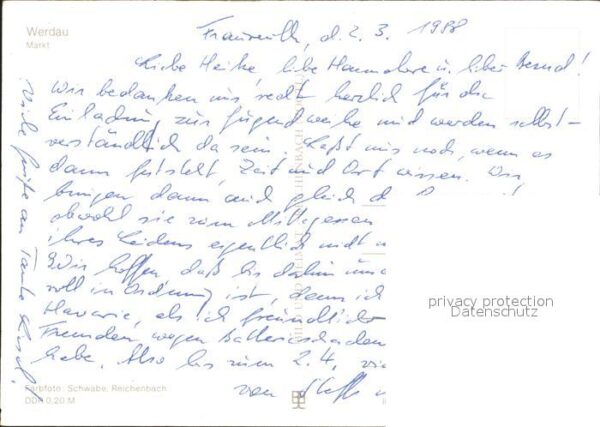 Werdau
Markt
Fraureuth, d. 2. 3. 1988
Liebe Heike, liebe Hannelore u. lieber Bernd!
Wir bedanken uns recht herzlich für die
Einladung zur Jugendweihe und werden selbst-
verständlich da sein. Laßt uns noch, wenn es
dann feststeht, Zeit und Ort wissen. Wir
bringen dann auch gleich d
obwohl sie zum Mittagessen
ihres Leidens eigentlich nicht
Wir hoffen, daß bis dahin uns
voll in Ordnung ist, denn ich
Havarie, als ich freundlicher
Fremden wegen Batterieschaden
habe. Also bis zum 2.4, vie
von
Viele Grüße an Tante
privacy protection
Datenschutz
Farbfoto: Schwabe, Reichenbach
DDR 0,20 M
BILD UND HEIMAT REICHENBACH